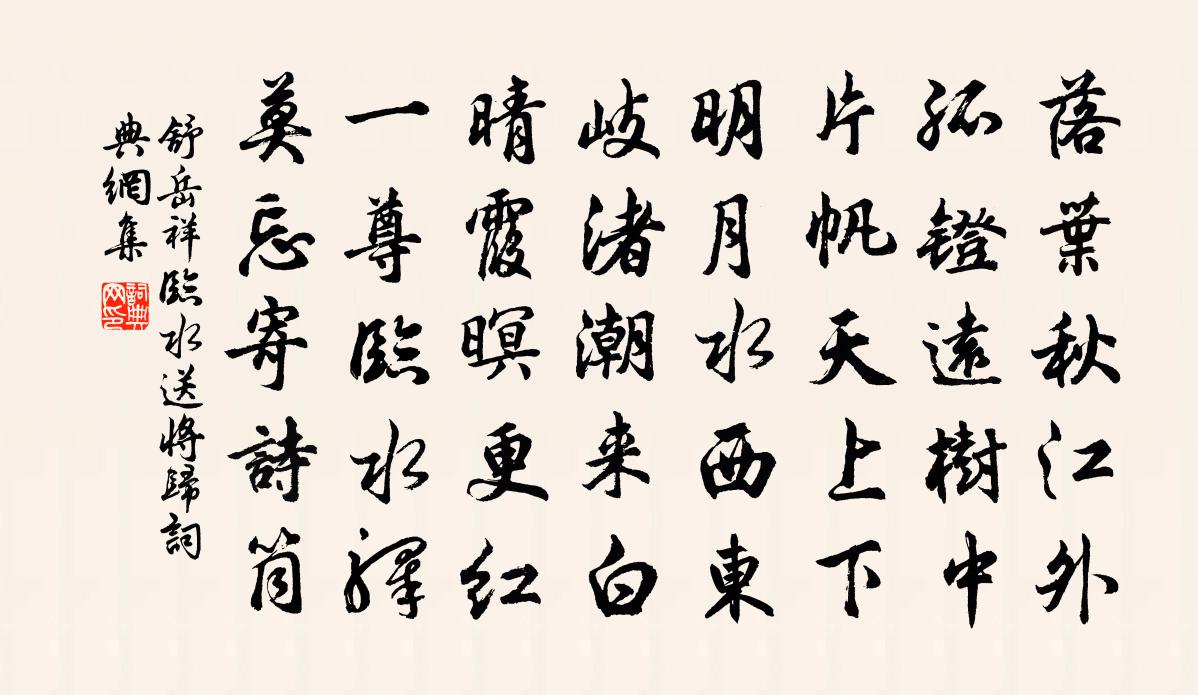 落葉秋江外
孤鐙遠樹中
片帆天上下
明月水西東
歧渚潮来白
晴霞暝更红
一尊臨水驛
莫忘寄詩筒
舒岳祥臨水送將歸詞
典網集
詞典
网印